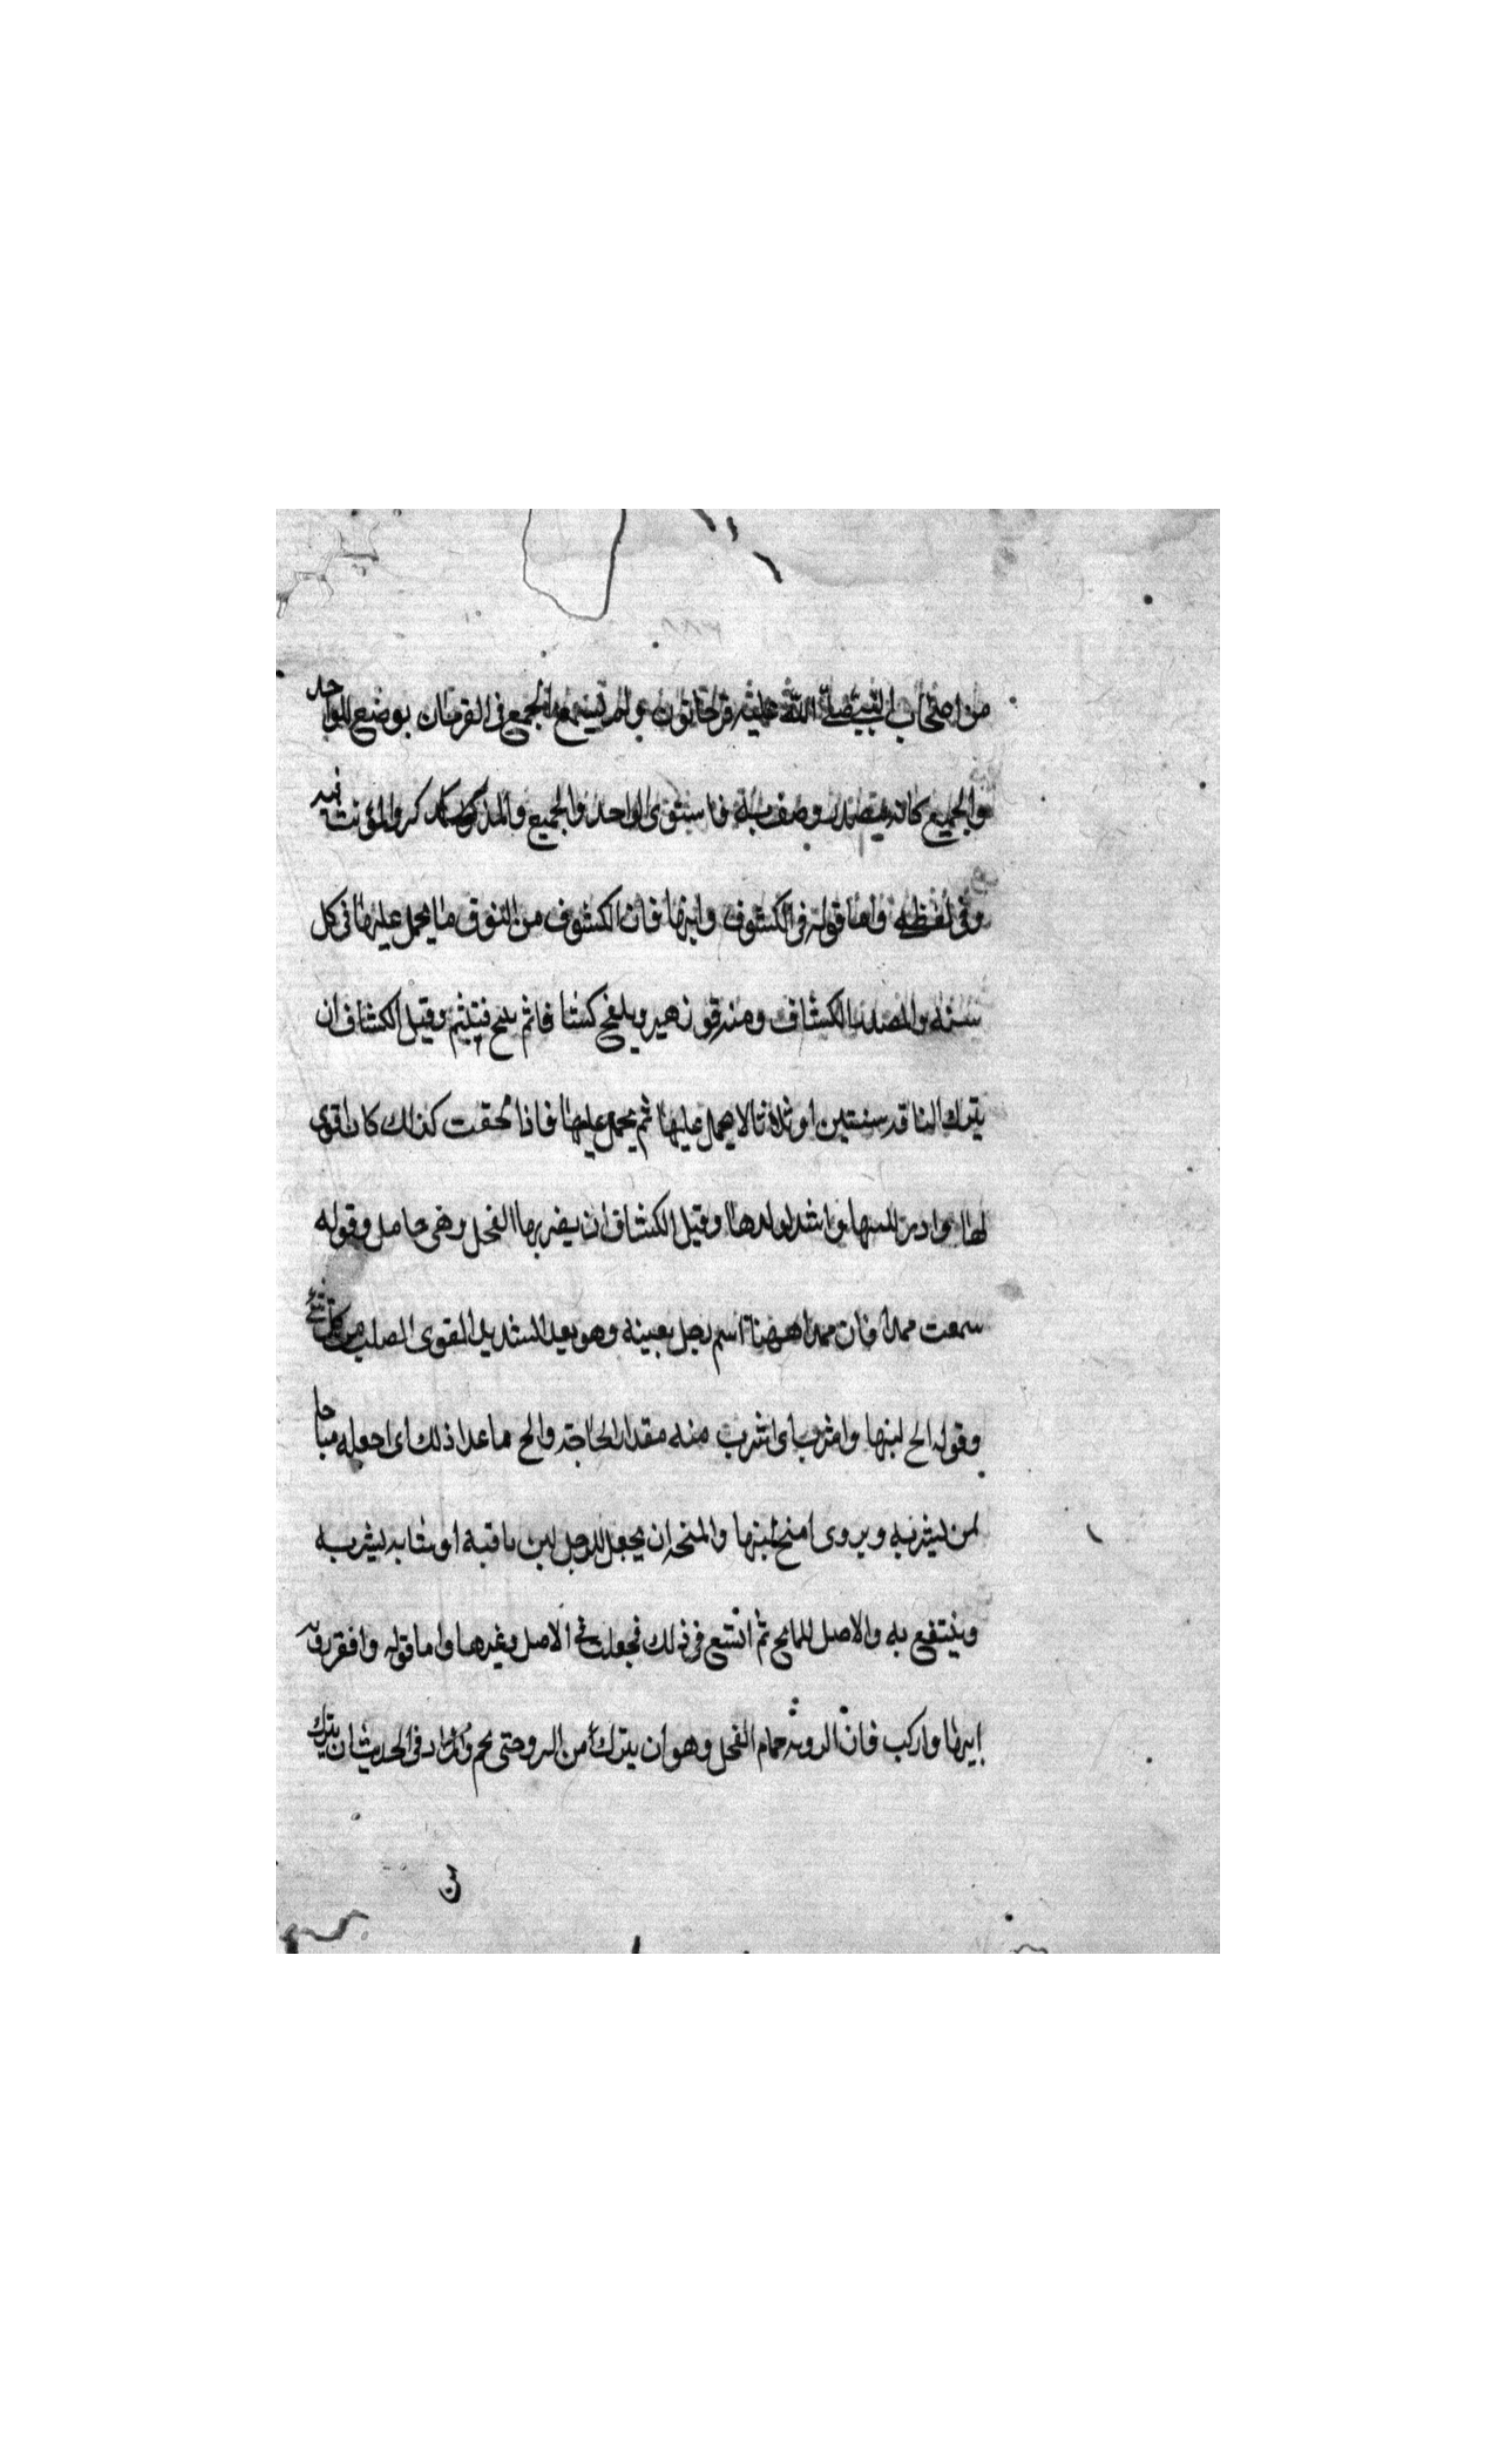 من اصحاب النبي صلى الله عليه قرحانون ولم يسمع الجمع في القرحان يوضع للواحد
والجميع كانه مصدر وصف به فاستوى الواحد والجميع والمذكر والمؤنث فيه
وفي لفظه واما قوله في الكشوف وابنها فان الكشوف من النوق ما يحمل عليها في كل
سنة والمصدر الكشاف ومنه قول زهير ويلقح كشافا ثم ينتج فتتئم وقيل الكشاف ان
يترك الناقة سنتين او ثلاثا لا يحمل عليها ثم يحمل عليها فاذا لحقت كذلك كان اقوى
لها وادر للبنها واشد لولدها وقيل الكشاف ان يضربها الفحل وهي حامل وقوله
سمعت ممدا فان ممدا ههنا اسم رجل بعينه وهو بعد الشديد القوى الصلب من كل شيء
وقوله الح لبنها واشرب اى اشرب منه مقدار الحاجة والح ما عدا ذلك اى اجعله مباحا
لمن ليشربه ويروى امنح لبنها والمنحة ان يجعل للرجل لبن ناقته او شاته ليشربه
وينتفع به والاصل للمانح ثم اتسع في ذلك فجعلت في الاصل وغيرها واما قوله وافقر
ابنها واركب فان الروبة جمام الفحل وهو ان يترك من النزو حتى يجم واراد في الحديث ان يترك